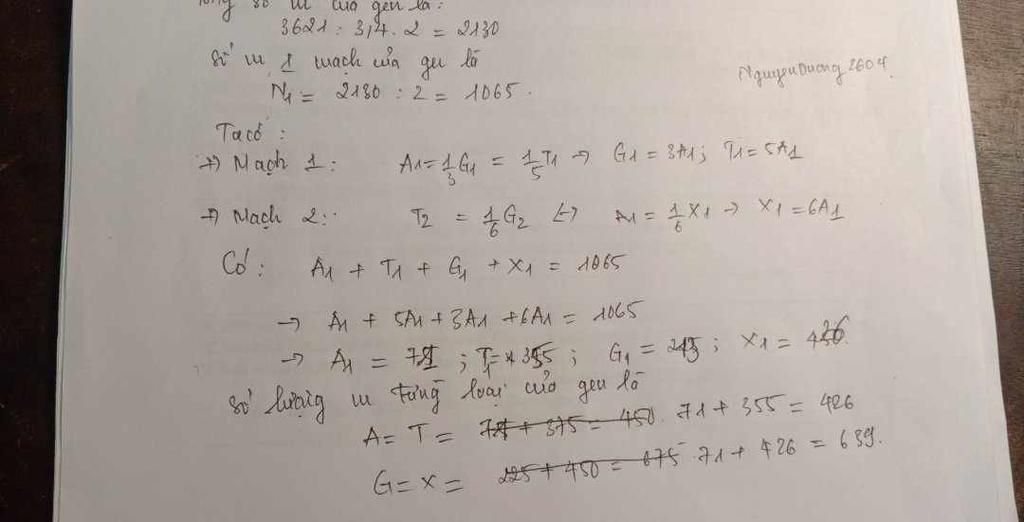 Tổng số nu của gen là:
3621 : 3,4 . 2 = 2130
Số nu 1 mạch của gen là
N1 = 2130 : 2 = 1065.
NguyenDuong2604.
Ta có:
→ Mạch 1: A1 = 1/3 G1 = 1/5 T1 → G1 = 3A1; T1 = 5A1
→ Mạch 2: T2 = 1/6 G2 ↔ A1 = 1/6 X1 → X1 = 6A1
Có: A1 + T1 + G1 + X1 = 1065
→ A1 + 5A1 + 3A1 + 6A1 = 1065
→ A1 = 71; T1 = 355; G1 = 213; X1 = 426
số lượng nu từng loại của gen là
A = T = 375 = 450. 71 + 355 = 426
G = X = 225 + 450 = 675 71 + 426 = 639.